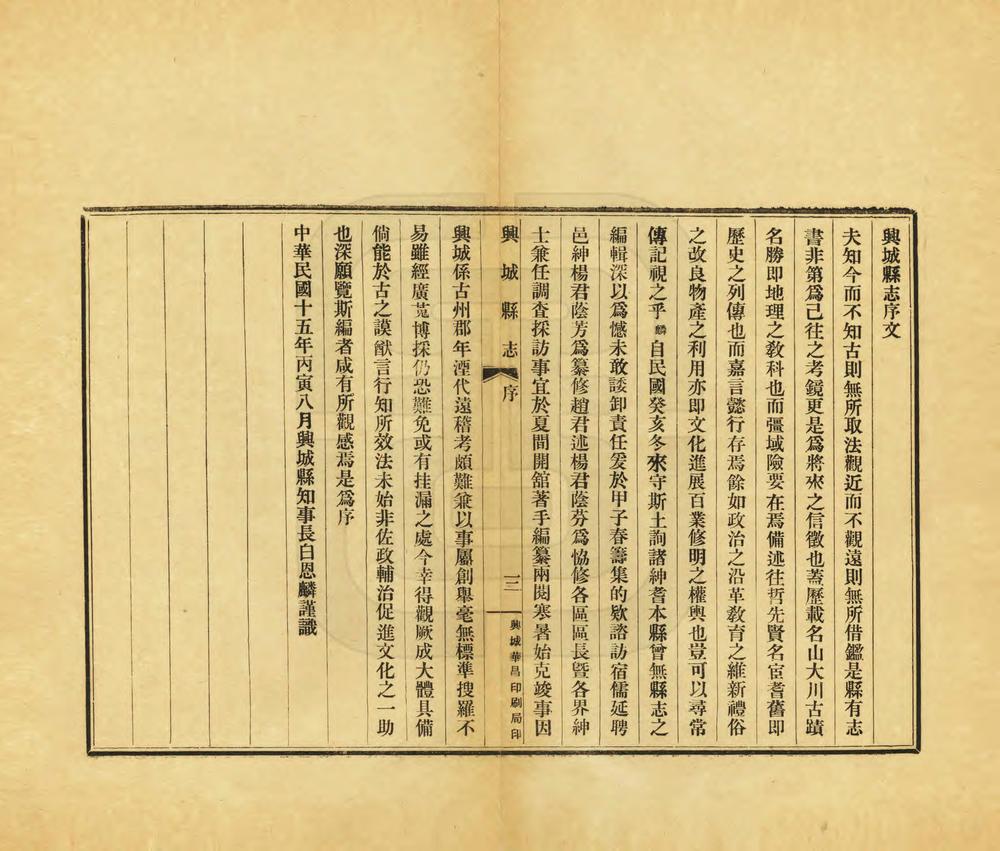 興城縣志序文
夫知今而不知古則無所取法觀近而不觀遠則無所借鑑是縣有志
書非第爲已往之考鏡更是爲將來之信徵也蓋歷載名山大川古蹟
名勝即地理之敎科也而彊域險要在焉備述往哲先賢名宦耆舊即
歷史之列傳也而嘉言懿行存焉餘如政治之沿革敎育之維新禮俗
之改良物產之利用亦即文化進展百業修明之權輿也豈可以尋常
傳記視之乎麟自民國癸亥冬來守斯土詢諸紳耆本縣曾無縣志之
編輯深以爲憾未敢諉卸責任爰於甲子春籌集的欵諮訪宿儒延聘
邑紳楊君蔭芳爲纂修趙君述楊君蔭芬爲恊修各區區長曁各界紳
士兼任調査採訪事宜於夏間開舘著手編纂兩閱寒暑始克竣事因
興城縣志 序 三 興城華昌印刷局印
興城係古州郡年湮代遠稽考頗難兼以事屬創舉毫無標準搜羅不
易雖經廣蒐博採仍恐難免或有挂漏之處今幸得觀厥成大體具備
倘能於古之謨猷言行知所效法未始非佐政輔治促進文化之一助
也深願覽斯編者咸有所觀感焉是爲序
中華民國十五年丙寅八月興城縣知事長白恩麟謹識